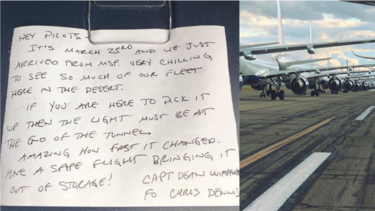 HEY PILOTS-
IT'S MARCH 23RD AND WE JUST
ARRIVED FROM MSP. VERY CHILLING
TO SEE SO MUCH OF OUR FLEET
HERE IN THE DESERT.
IF YOU ARE HERE TO PICK IT
UP THEN THE LIGHT MUST BE AT
THE END OF THE TUNNEL.
AMAZING HOW FAST IT CHANGED.
HAVE A SAFE FLIGHT BRINGING IT
OUT OF STORAGE!
CAPT
FO CHRIS DENNIS